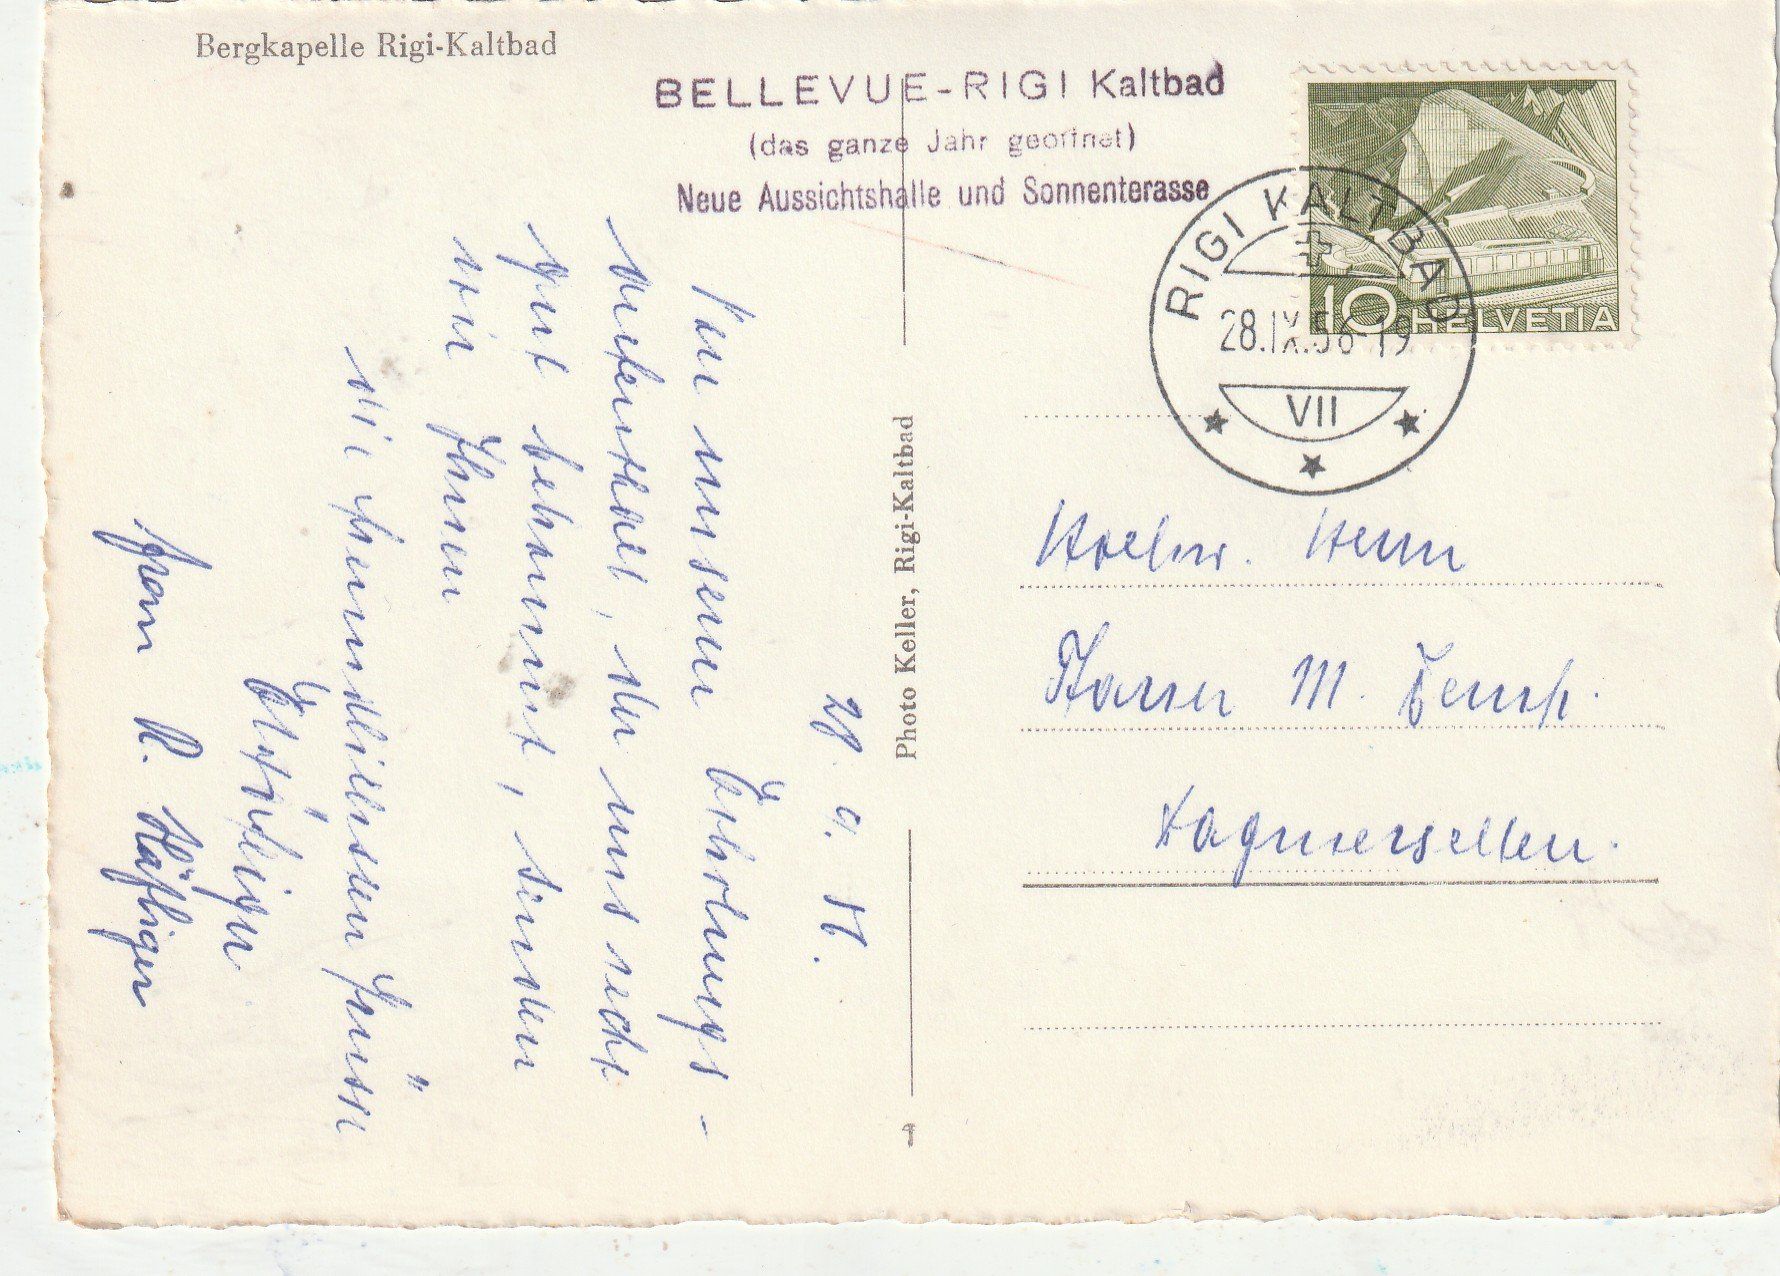 Bergkapelle Rigi-Kaltbad
BELLEVUE-RIGI Kaltbad
(das ganze Jahr geöffnet)
Neue Aussichtshalle und Sonnenterasse
HELVETIA
10
RIGI KALTBAD
28.IX.56-19
VII
28. 9. 56.
Von unserm Erholungs-
aufenthalt, der uns recht
gut bekommt, senden
wir Ihnen
die freundlichsten Grüsse
Frau R. Häfliger
Photo Keller, Rigi-Kaltbad
1
Hochw. Herrn
Pfarrer M.
Dagmersellen.